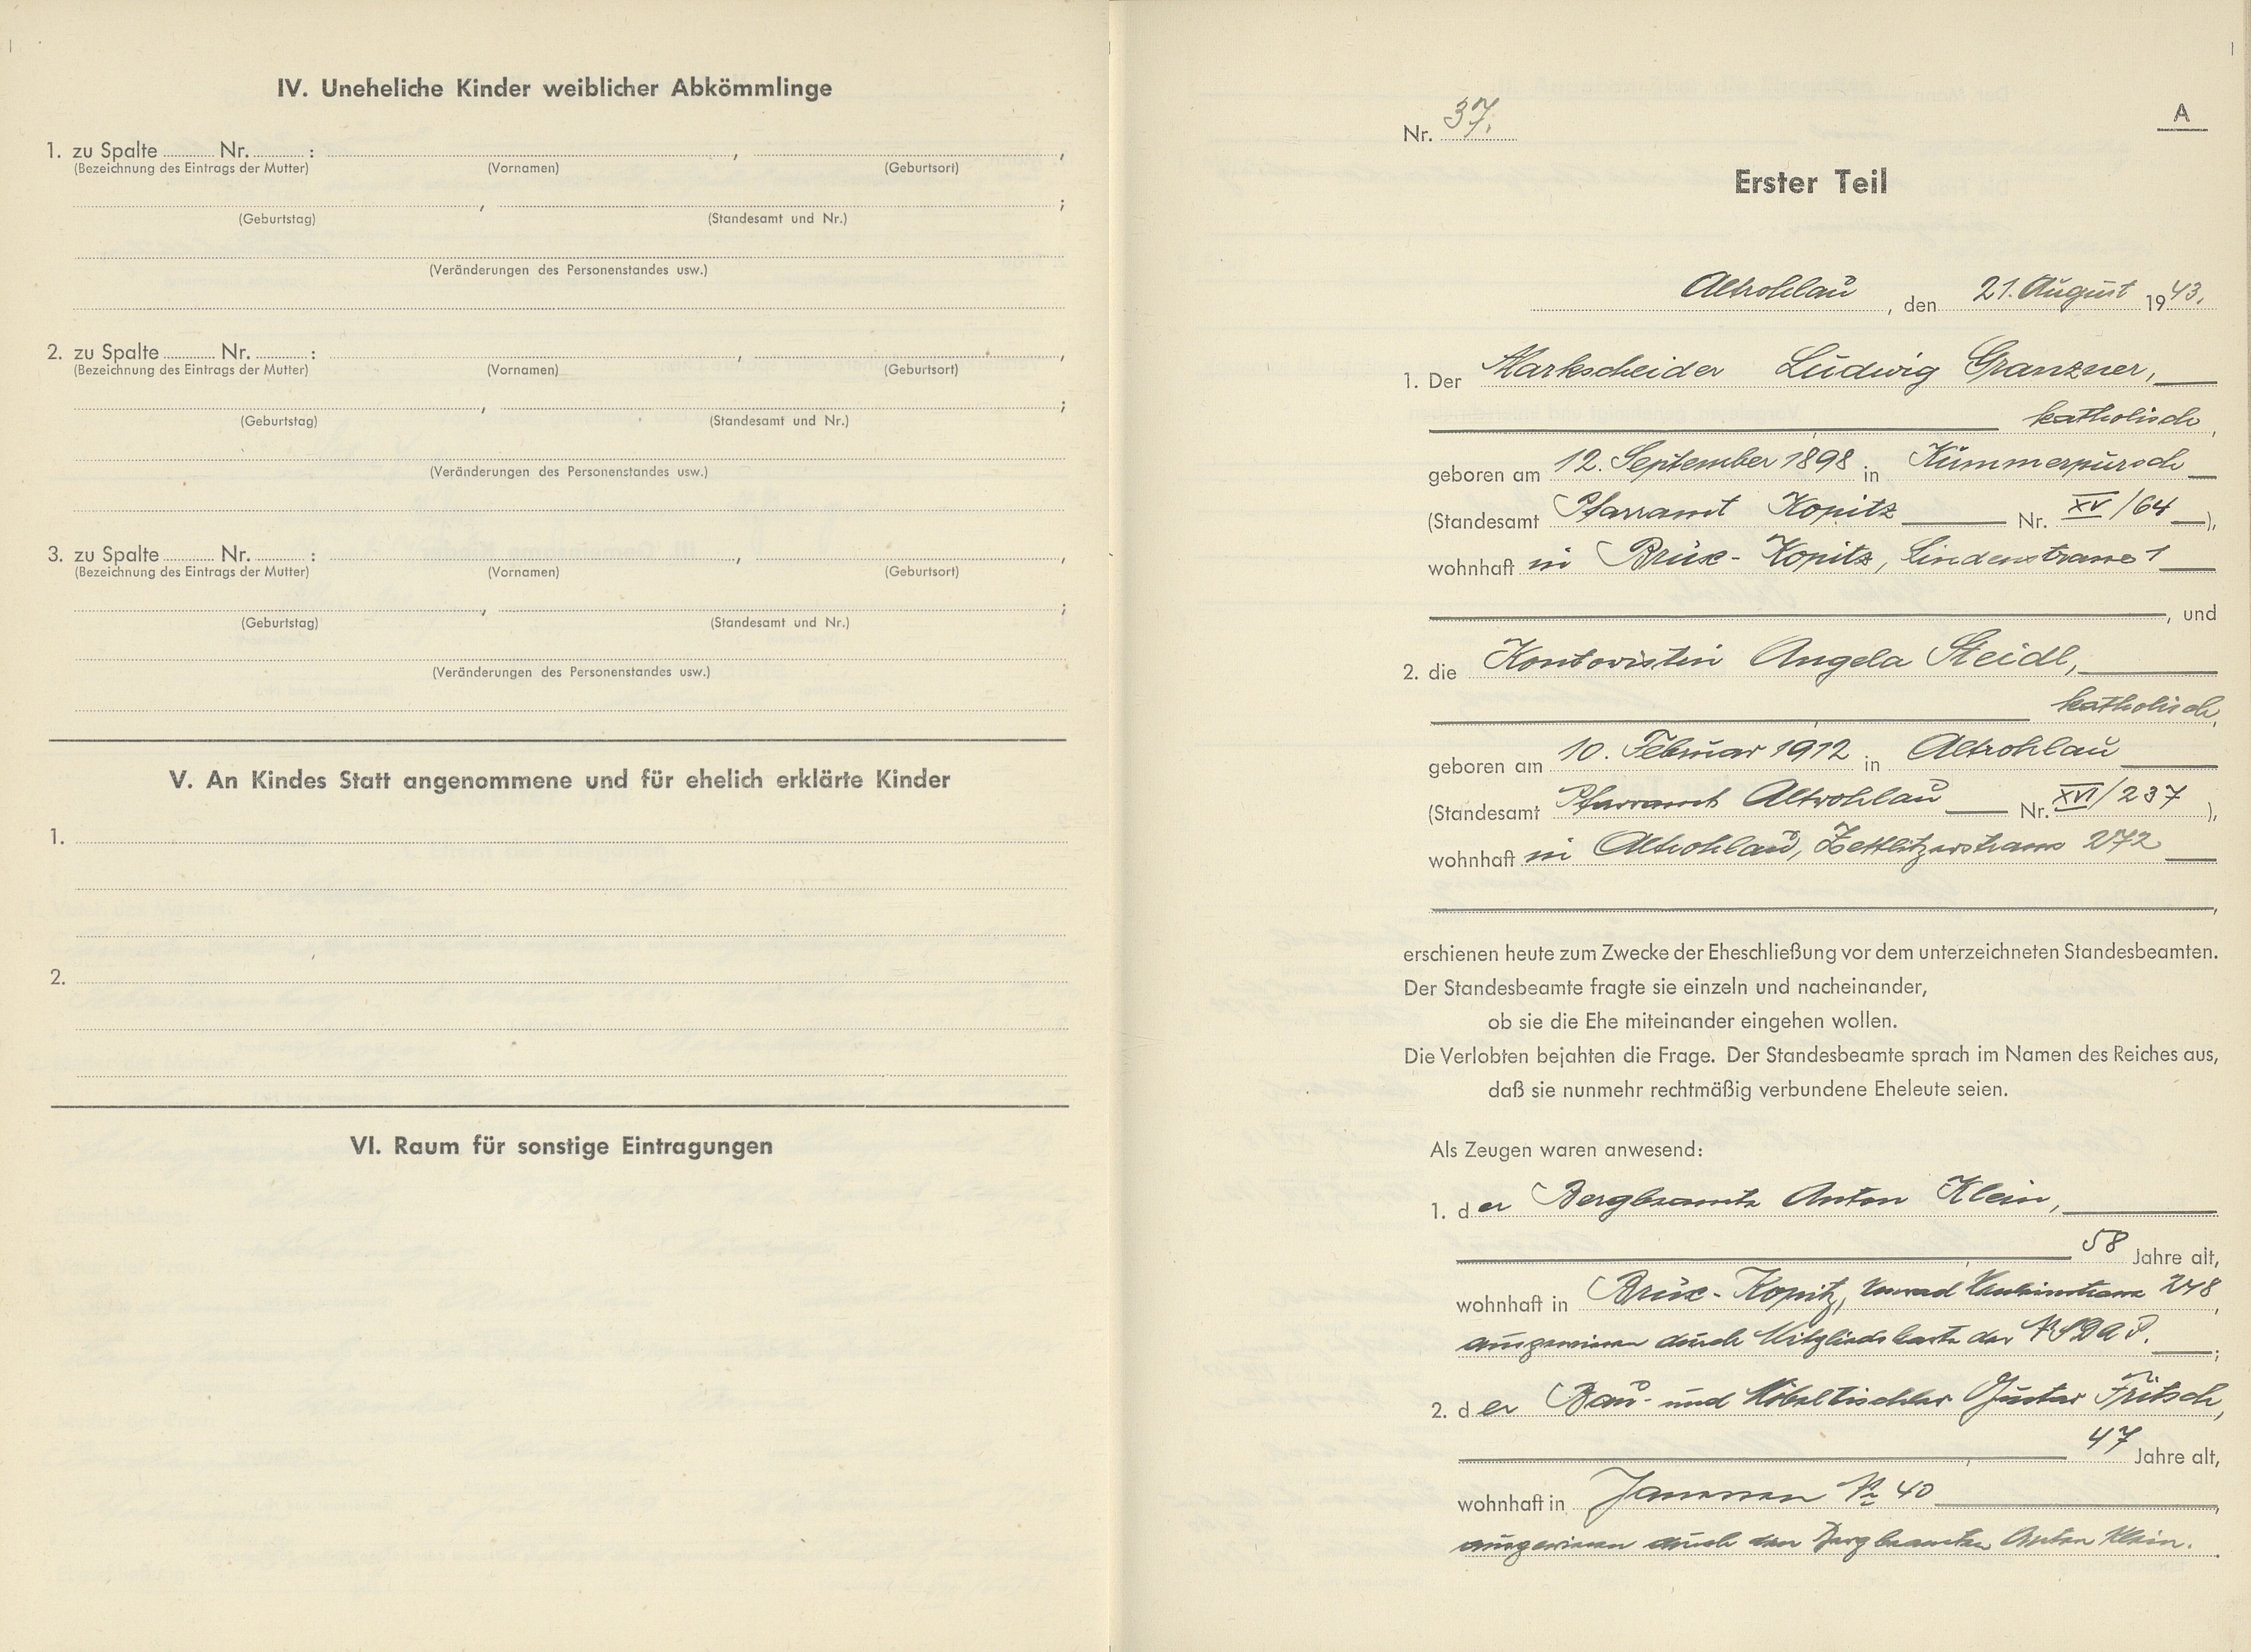 IV. Uneheliche Kinder weiblicher Abkömmlinge
1. zu Spalte Nr. : , ,
(Bezeichnung des Eintrags der Mutter) (Vornamen) (Geburtsort)
, ;
(Geburtstag) (Standesamt und Nr.)
(Veränderungen des Personenstandes usw.)
2. zu Spalte Nr. : , ,
(Bezeichnung des Eintrags der Mutter) (Vornamen) (Geburtsort)
, ;
(Geburtstag) (Standesamt und Nr.)
(Veränderungen des Personenstandes usw.)
3. zu Spalte Nr. : , ,
(Bezeichnung des Eintrags der Mutter) (Vornamen) (Geburtsort)
, ;
(Geburtstag) (Standesamt und Nr.)
(Veränderungen des Personenstandes usw.)
V. An Kindes Statt angenommene und für ehelich erklärte Kinder
1.
2.
VI. Raum für sonstige Eintragungen
A
Nr. 37.
Erster Teil
Altrohlau, den 21. August 1943.
1. Der Markscheider Ludwig Granzner,
katholisch,
geboren am 12. September 1898 in Kummerpursch
(Standesamt Pfarramt Kopitz Nr. XV/64),
wohnhaft in Brüx-Kopitz, Lindenstrasse 1
, und
2. die Kontoristin Angela Steidl,
katholisch,
geboren am 10. Februar 1912 in Altrohlau
(Standesamt Pfarramt Altrohlau Nr. XVI/237),
wohnhaft in Altrohlau, Zettlitzerstrasse 272
,
erschienen heute zum Zwecke der Eheschließung vor dem unterzeichneten Standesbeamten.
Der Standesbeamte fragte sie einzeln und nacheinander,
ob sie die Ehe miteinander eingehen wollen.
Die Verlobten bejahten die Frage. Der Standesbeamte sprach im Namen des Reiches aus,
daß sie nunmehr rechtmäßig verbundene Eheleute seien.
Als Zeugen waren anwesend:
1. der Bergbeamte Anton Klein,
58 Jahre alt,
wohnhaft in Brüx-Kopitz, Konrad 248,
ausgewiesen durch Mitgliedskarte der NSDAP. ;
2. der Bau- und Möbeltischler Gustav Fritsch,
47 Jahre alt,
wohnhaft in Janessen Nr 40,
ausgewiesen durch den Bergbeamten Anton Klein.